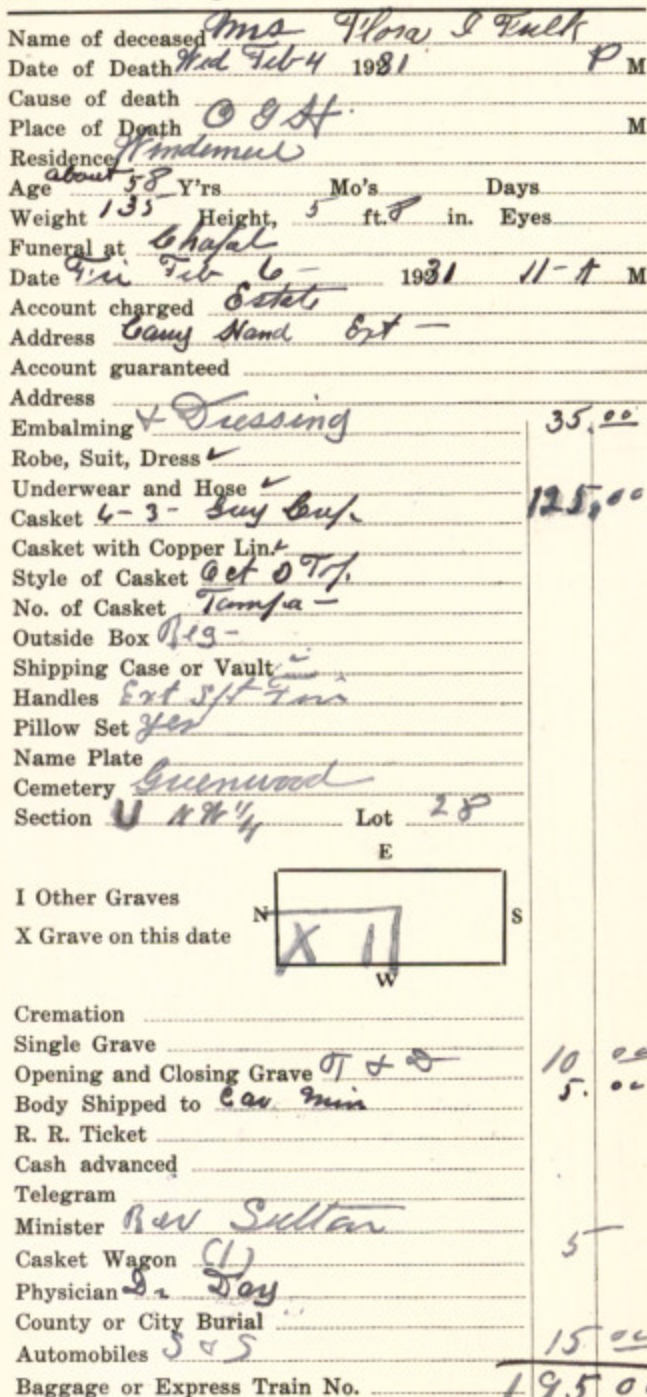 Name of deceased Mrs Flora I Fulk
Date of Death Wed Feb 4 1931 P M
Cause of death
Place of Death O G H. M
Residence Windermere
Age about 58 Y'rs Mo's Days
Weight 135 Height, 5 ft. 8 in. Eyes
Funeral at Chapel
Date Fri Feb 6 - 1931 11 - A M
Account charged Estate
Address Hand
Account guaranteed
Address
Embalming + Dressing 35.00
Robe, Suit, Dress ✓
Underwear and Hose ✓
Casket 6-3- 125.00
Casket with Copper Lin. ✓
Style of Casket Oct
No. of Casket Tampa -
Outside Box Reg -
Shipping Case or Vault
Handles Ext
Pillow Set yes
Name Plate
Cemetery Greenwood
Section U N W 1/4 Lot 28
E
I Other Graves
N S
X Grave on this date
X 11
W
Cremation
Single Grave
Opening and Closing Grave T & D 10 00
Body Shipped to 5.00
R. R. Ticket
Cash advanced
Telegram
Minister Rev
Casket Wagon (1) 5
Physician Dr Day
County or City Burial
Automobiles S & S 15 00
Baggage or Express Train No. 195 0